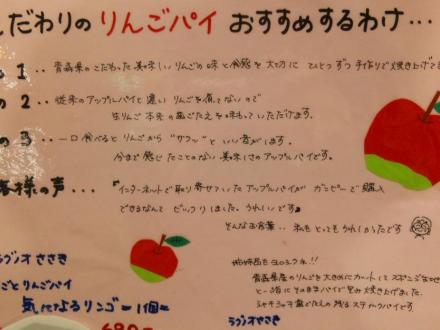 こだわりの りんごパイ おすすめするわけ...
の 1.. 青森県のこだわった美味しいりんごの味と食感を大切に ひとつずつ手作りで焼き上げてま
の 2.. 従来のアップルパイと違いりんごを煮てないので
生りんご本来の歯ごたえを味わっていただけます。
の 3.. 一口食べるとりんごから"サクッ"といい音がします。
今まで感じたことのない美味しさのアップルパイです。
客様の声... 『インターネットで取り寄せていたアップルパイが ガーデーで購入
できるなんて ビックリしました。うれしいです』
そんなお言葉.. 私もとってもうれしかったです
姉妹品もヨロシクネ!!
青森県産のりんごを大きめにカットして スポンジ
と一緒にそのままパイで包み焼き上げました。
シャキシャキ歯ごたえの残るスティックパイです
ラグノオ ささき
ごとりんごパイ
気になるリンゴ =1個=
680円
ラグノオささき